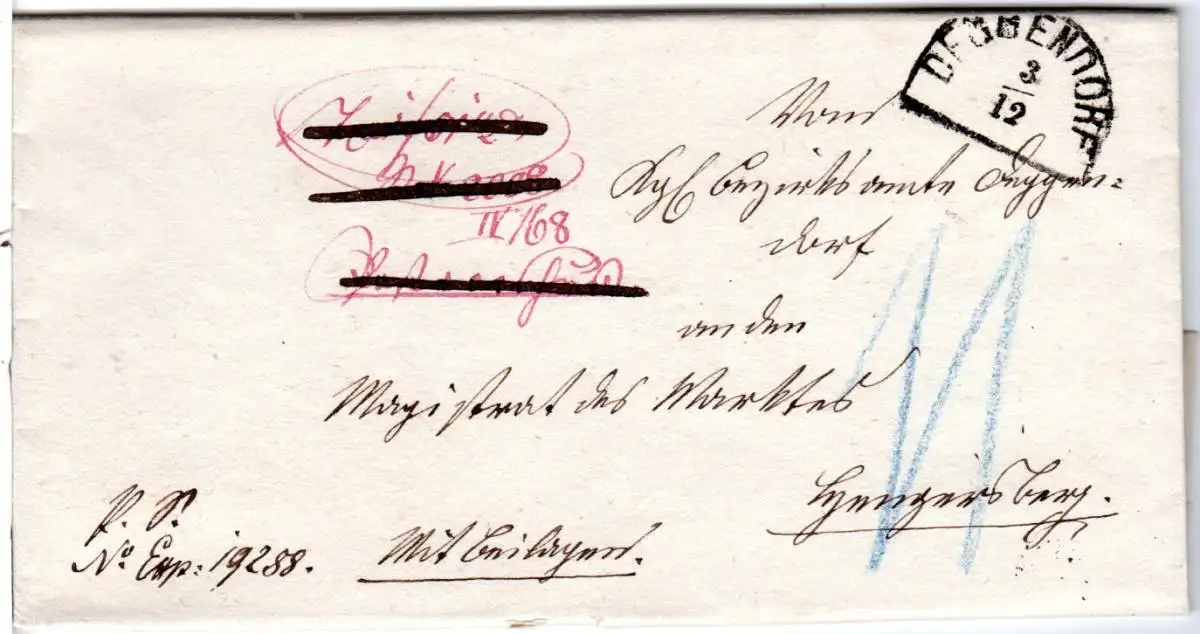 DEGGENDORF
3
12
Vom
Kgl Bezirksamte Deggen=
dorf
an den
Magistrat des Marktes
Hengersberg.
IV/68
P. S.
No Exp: 19288.
Mit Beilagen.
11